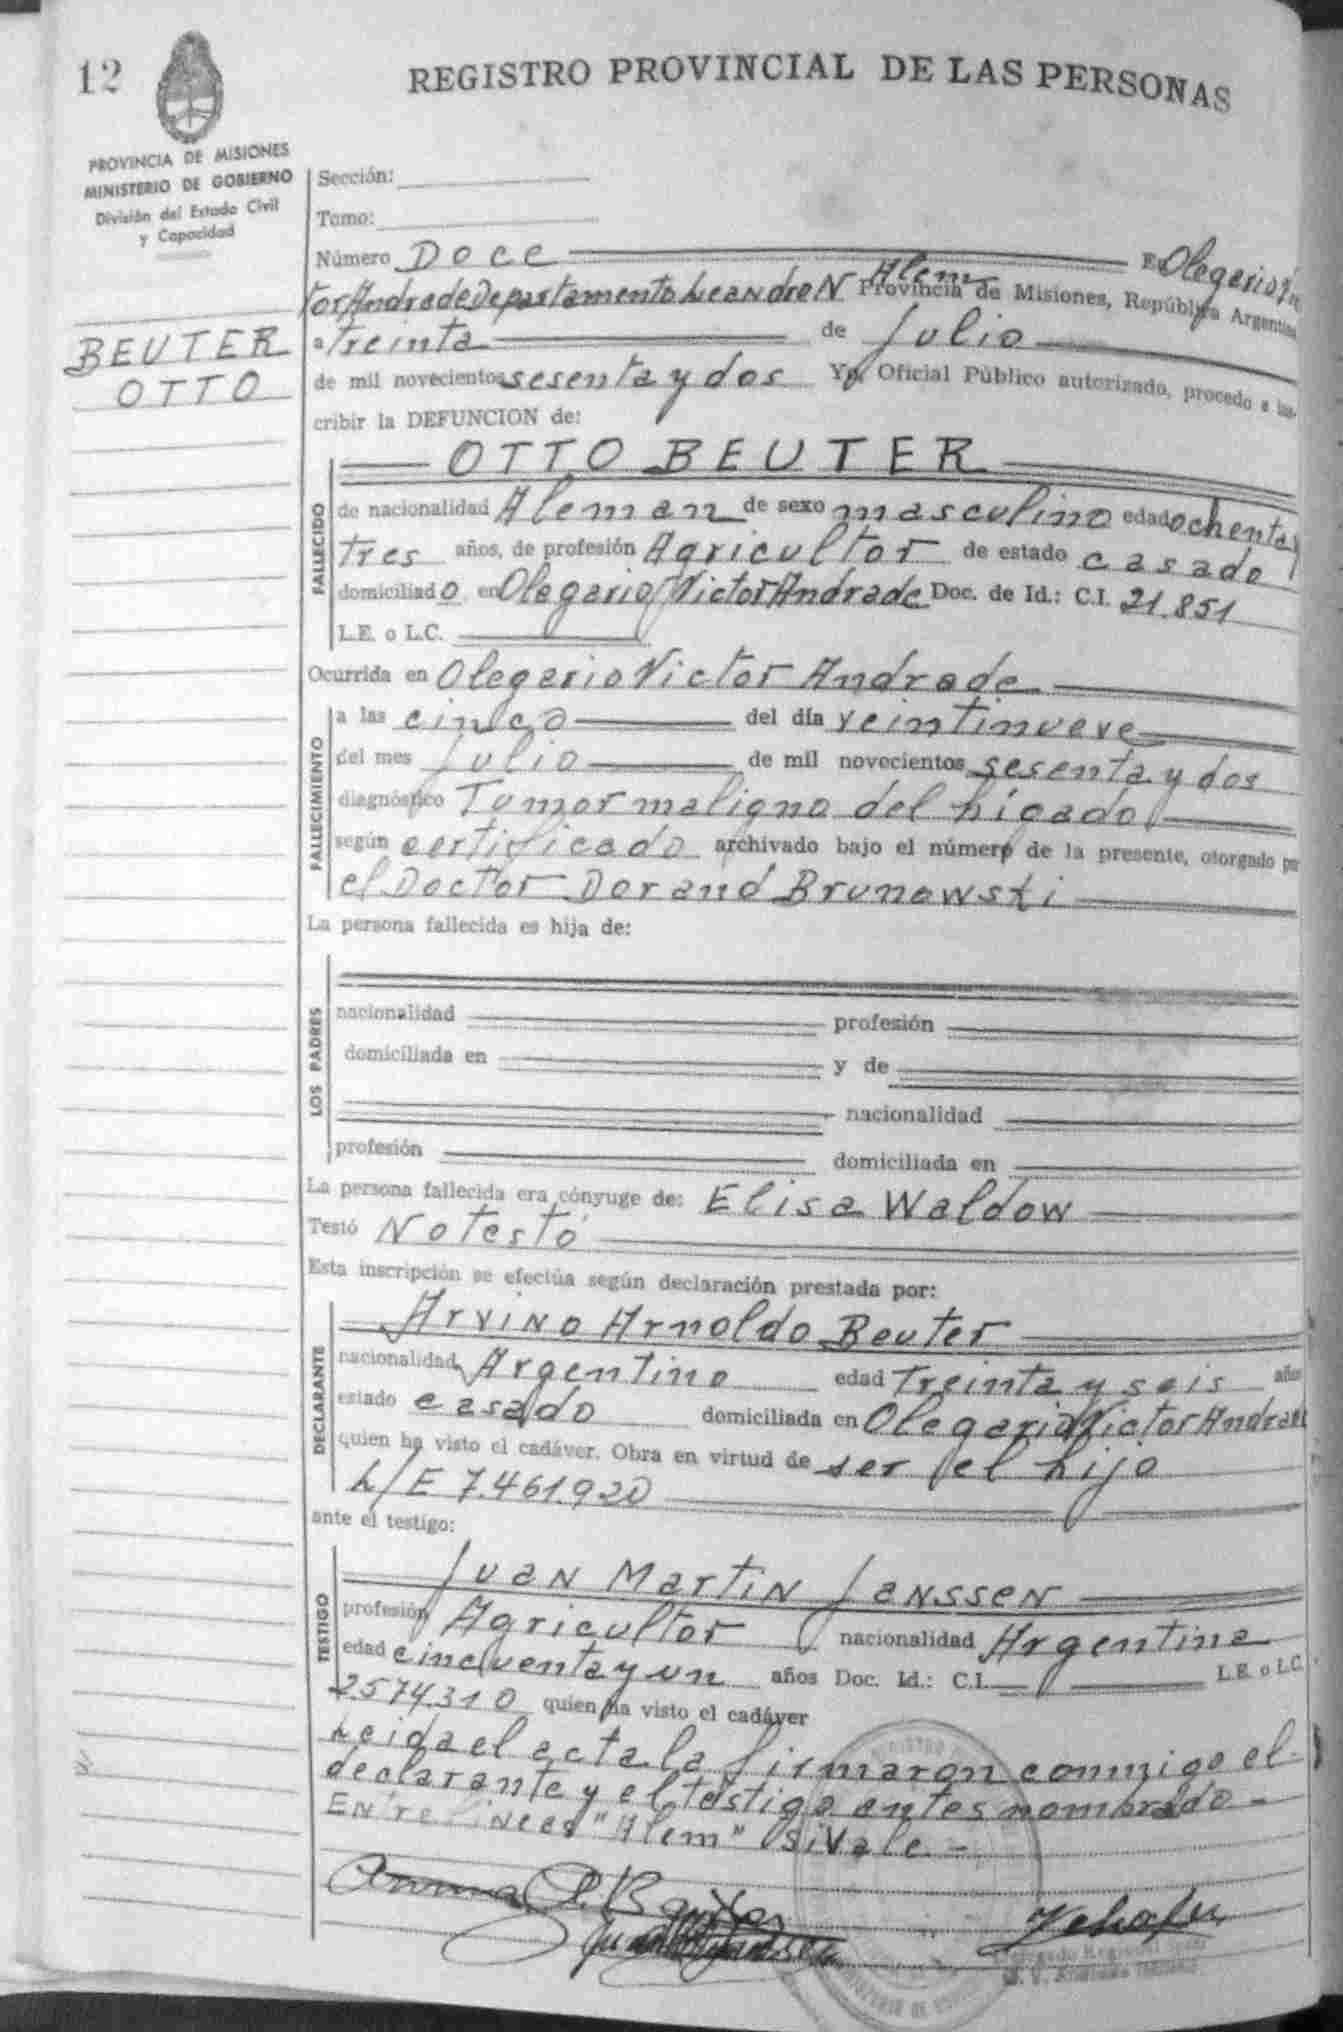 12
REGISTRO PROVINCIAL DE LAS PERSONAS
PROVINCIA DE MISIONES
MINISTERIO DE GOBIERNO
División del Estado Civil
y Capacidad
BEUTER
OTTO
Sección:
Tomo:
Número Doce En Olegario Víc
tor Andrade Departamento Leandro N Alem Provincia de Misiones, República Argentina
a treinta de Julio
de mil novecientos sesenta y dos Yo, Oficial Público autorizado, procedo a ins-
cribir la DEFUNCION de:
OTTO BEUTER
FALLECIDO
de nacionalidad Aleman de sexo masculino edad ochenta y
tres años, de profesión Agricultor de estado casado
domiciliado en Olegario Victor Andrade Doc. de Id.: C.I. 21.851
L.E. o L.C.
Ocurrida en Olegario Victor Andrade
FALLECIMIENTO
a las cinco del día veintinueve
del mes Julio de mil novecientos sesenta y dos
diagnóstico Tumor maligno del hígado
según certificado archivado bajo el número de la presente, otorgado por
el Doctor Dorand Brunowski
La persona fallecida es hija de:
LOS PADRES
nacionalidad profesión
domiciliada en y de
nacionalidad
profesión domiciliada en
La persona fallecida era cónyuge de: Elisa Waldow
Testó No testó
Esta inscripción se efectúa según declaración prestada por:
DECLARANTE
Arvino Arnoldo Beuter
nacionalidad Argentino edad Treinta y seis años
estado casado domiciliada en Olegario Victor Andrade
quien ha visto el cadáver. Obra en virtud de ser el hijo
L/E 7.461.920
ante el testigo:
TESTIGO
Juan Martin Janssen
profesión Agricultor nacionalidad Argentina
edad cincuenta y un años Doc. Id.: C.I. L.E. o L.C.
2574310 quien ha visto el cadáver
Leida el acta la firmaron conmigo el
declarante y el testigo antes nombrado -
Entre lineas "Alem" si vale. -
Delegado Regional